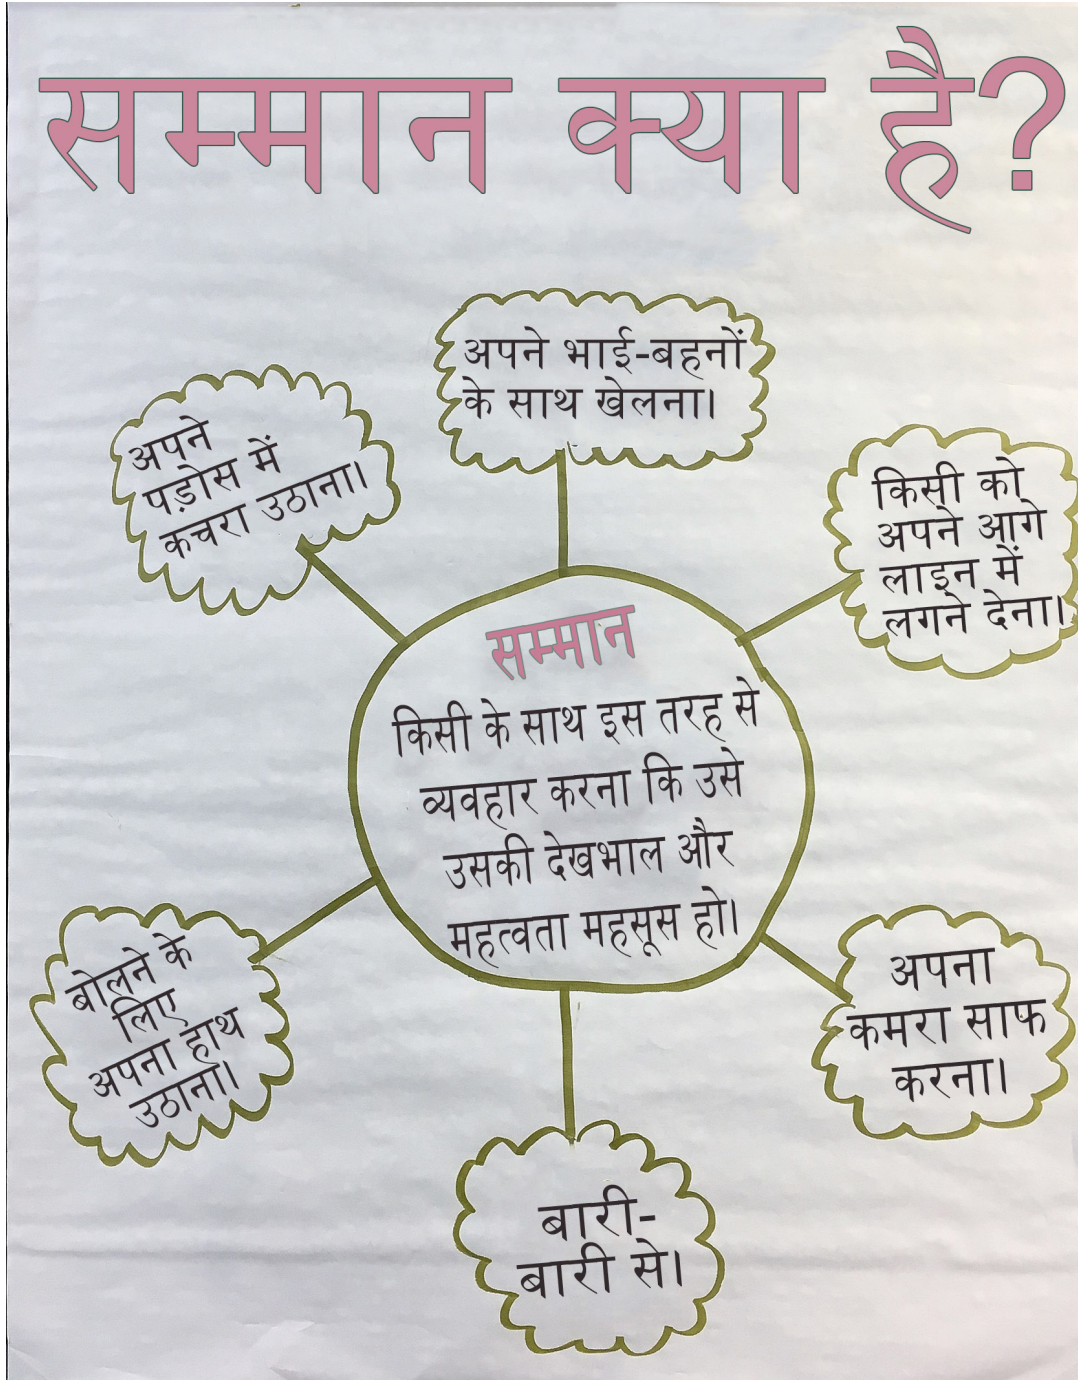 सम्मान क्या है?
अपने भाई-बहनों
के साथ खेलना।
अपने
पड़ोस में
कचरा उठाना।
किसी को
अपने आगे
लाइन में
लगने देना।
सम्मान
किसी के साथ इस तरह से
व्यवहार करना कि उसे
उसकी देखभाल और
महत्वता महसूस हो।
बोलने के
लिए
अपना हाथ
उठाना।
अपना
कमरा साफ
करना।
बारी-
बारी से।